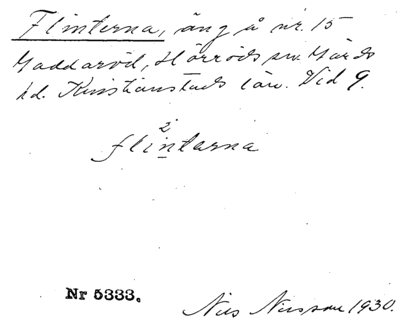 Flinterna, äng å nr. 15
Gaddaröd, Hörröds sn. Gärds
hd. Kristianstads län. Vid 9.
2
flinterna
Nr 5333.
Nils Nilsson 1930.